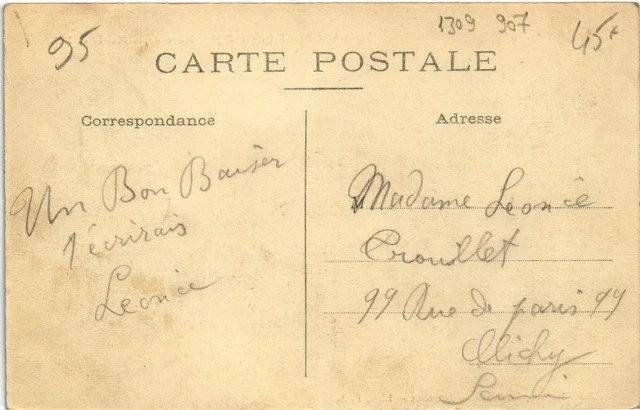 95
1309 907
45F
CARTE POSTALE
Correspondance
Un Bon Baiser
j'écrirais
Leonce
Adresse
Madame Leonce
Prouillet
99 Rue de paris 99
Clichy
Seine